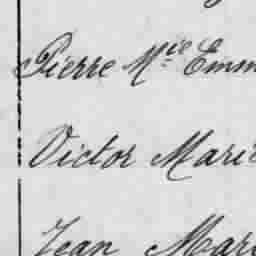 Pierre Mie Emm
Victor Marie
Jean Mar